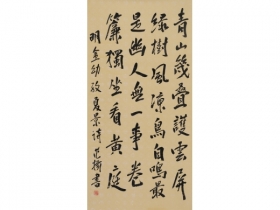 青山幾疊護雲屏
綠樹風涼鳥自鳴最
是幽人無一事卷
簾獨坐看黃庭
明金幼孜夏景詩 范碩書